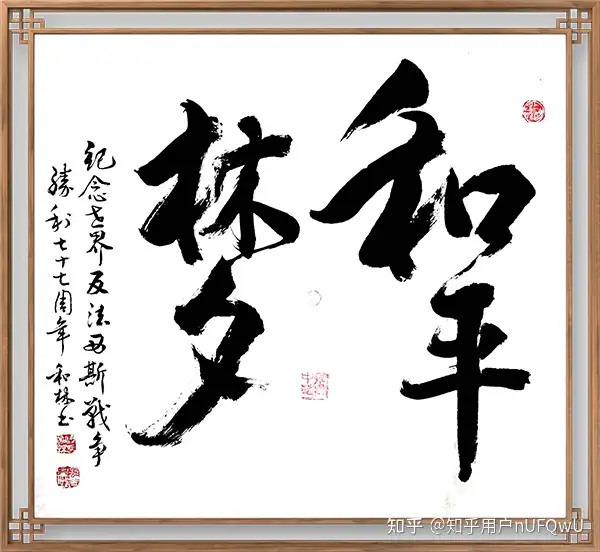 和平
梦
紀念世界反法西斯戰争
勝利七十七周年 和林书
知乎 @知乎用户nUFQwU